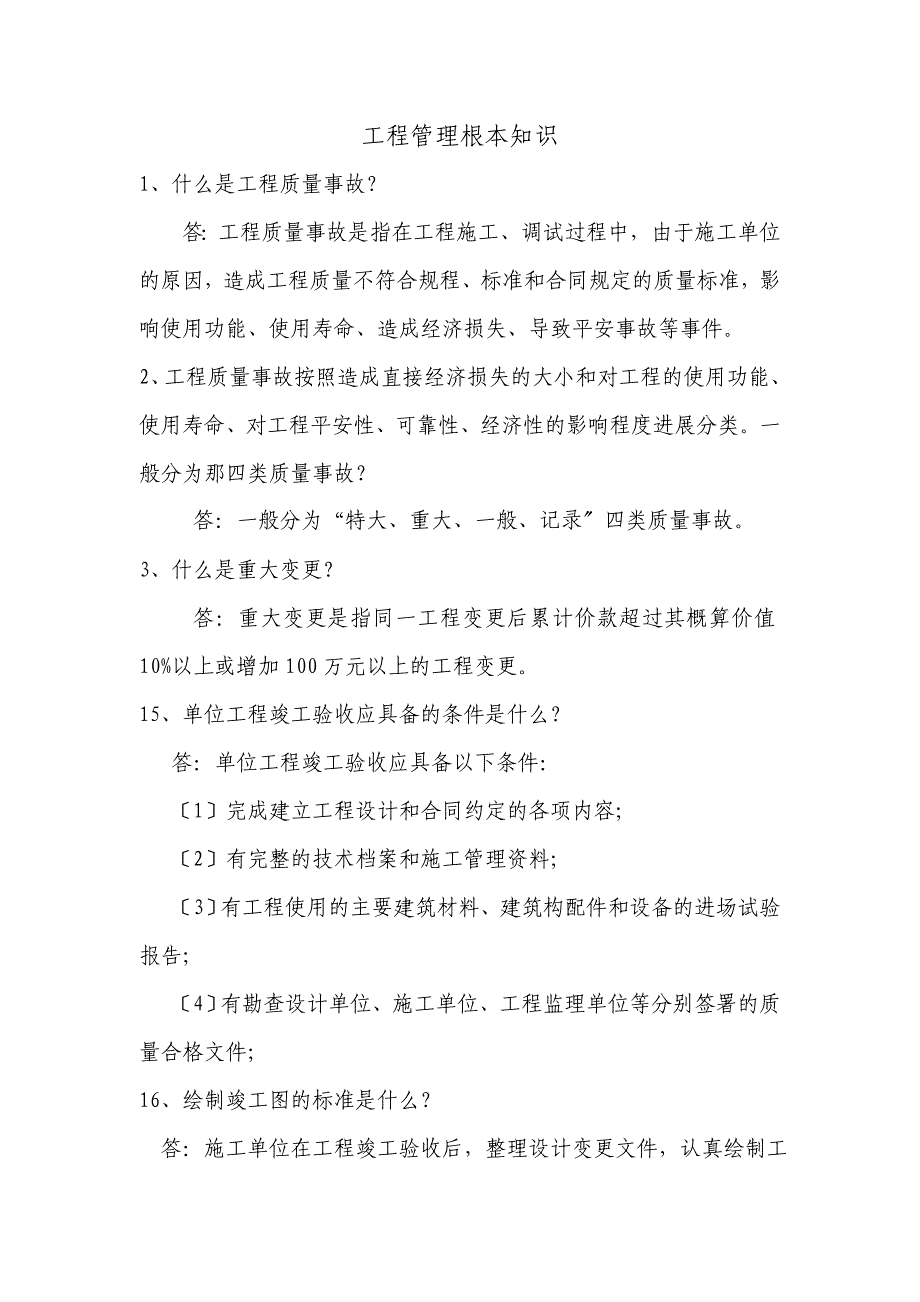 工程管理根本知识
1、什么是工程质量事故？
答：工程质量事故是指在工程施工、调试过程中，由于施工单位
的原因，造成工程质量不符合规程、标准和合同规定的质量标准，影
响使用功能、使用寿命、造成经济损失、导致平安事故等事件。
2、工程质量事故按照造成直接经济损失的大小和对工程的使用功能、
使用寿命、对工程平安性、可靠性、经济性的影响程度进展分类。一
般分为那四类质量事故？
答：一般分为“特大、重大、一般、记录〞四类质量事故。
3、什么是重大变更？
答：重大变更是指同一工程变更后累计价款超过其概算价值
10%以上或增加 100 万元以上的工程变更。
15、单位工程竣工验收应具备的条件是什么？
答：单位工程竣工验收应具备以下条件：
〔1〕完成建立工程设计和合同约定的各项内容；
〔2〕有完整的技术档案和施工管理资料；
〔3〕有工程使用的主要建筑材料、建筑构配件和设备的进场试验
报告；
〔4〕有勘查设计单位、施工单位、工程监理单位等分别签署的质
量合格文件；
16、绘制竣工图的标准是什么？
答：施工单位在工程竣工验收后，整理设计变更文件，认真绘制工